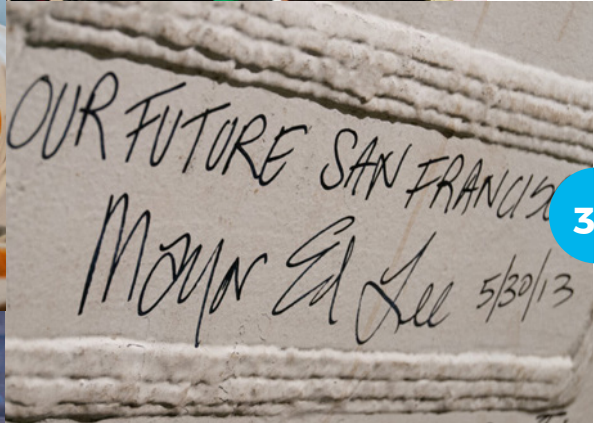 OUR FUTURE SAN FRANCISC
Mayor Ed Lee 5/30/13
3